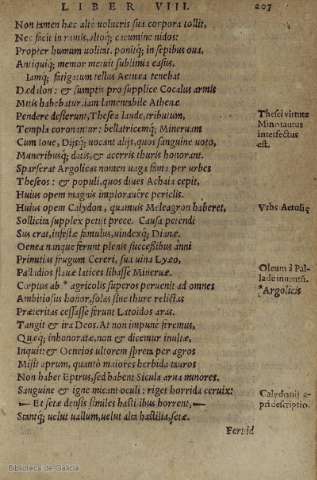 LIBER VIII. 207
Non tamen hæc alte uolucris sua corpora tollit,
Nec facit in ramis, altoq; cacumine nidos:
Propter humum uolitat. ponitq; in sepibus oua,
Antiquiq; memor metuit sublimia casus.
Iamq; fatigatum tellus Aetnæa tenebat
Dædalon: & sumptis pro supplice Cocalus armis
Mitis habebatur. iam lamentabile Athenæ
Pendere desierunt, Thesea laude, tributum,
Thesei virtus
Templa coronantur: bellatricemq; Mineruam
Minotaurus
Cum Ioue, Disq; uocant alijs, quos sanguine uoto,
interfectus
Muneribusq; datis, & acerris thuris honorant.
est.
Sparserat Argolicas nomen uaga fama per urbes
Theseos: & populi, quos diues Achaia cepit,
Huius opem magnis implorauere periclis.
Huius opem Calydon, quamuis Meleagron haberet,
Vrbs Aetoliæ
Sollicita supplex petijt prece. Causa petendi
Sus erat, infestæ famulus, uindexq; Dianæ.
Oenea nanque ferunt plenis successibus anni
Primitias frugum Cereri, sua uina Lyæo,
Palladios flauæ latices libasse Mineruæ.
Oleum à Pal-
lade inuentũ.
Cœptus ab * agricolis superos peruenit ad omnes
*Argolicis
Ambitiosus honor, solas sine thure relictas
Præteritæ cessasse ferunt Latoidos aras.
Tangit & ira Deos. At non impune feremus,
Quæq; inhonoratæ, non & dicemur inultæ,
Inquit: & Oeneios ultorem spreta per agros
Misit aprum, quanto maiores herbida tauros
Non habet Epirus, sed habent Sicula arua minores.
Sanguine & igne micant oculi: riget horrida ceruix:
Calydonij a-
Et setæ densis similes hastilibus horrent,
pri descriptio.
Stantq; uelut uallum, uelut alta hastilia, setæ.
Feruid
Biblioteca de Galicia